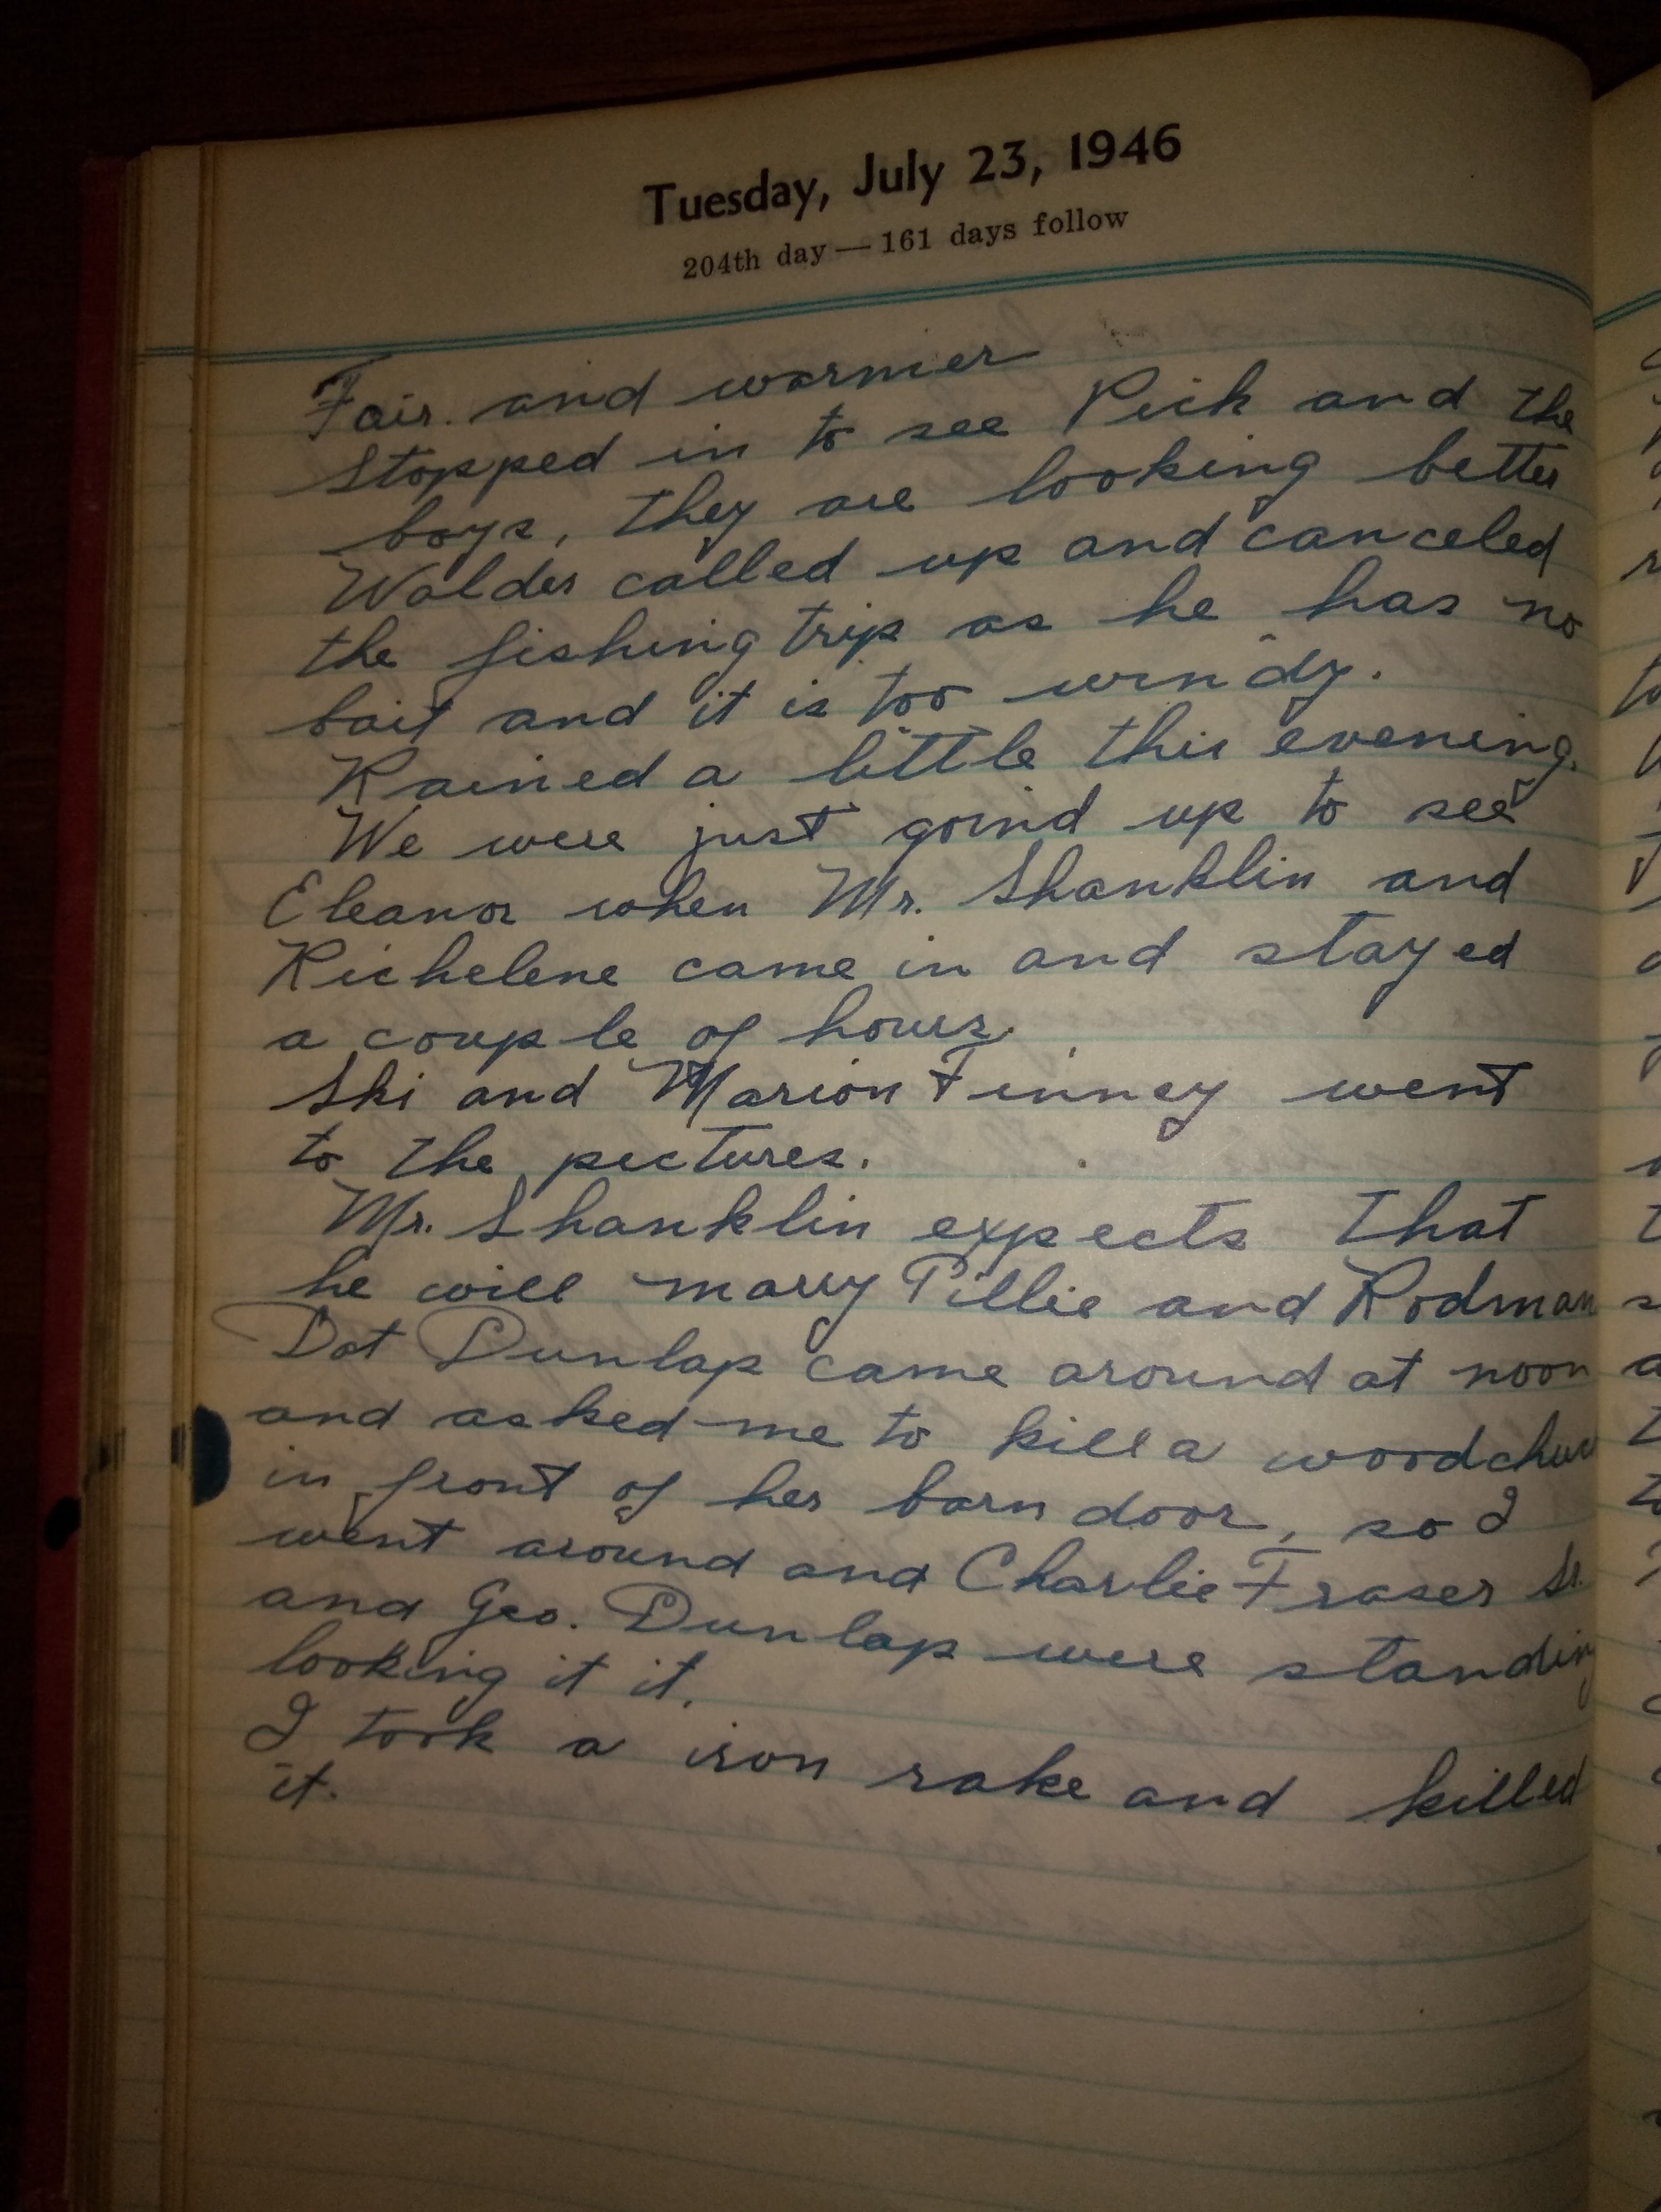 Tuesday, July 23, 1946
204th day — 161 days follow
Fair. and warmer
Stopped in to see Pick and the
boys, they are looking better
Walder called up and canceled
the fishing trip as he has no
bait and it is too windy.
Rained a little this evening.
We were just goind up to see
Eleanor when Mr. Shanklin and
Richelene came in and stayed
a couple of hours.
Ski and Marion Finney went
to the pictures.
Mr. Shanklin expects that
he will marry Pillie and Rodman
Dot Dunlap came around at noon
and asked me to kill a woodchuc
in front of her barn door, so I
went around and Charlie Fraser Sr.
and Geo. Dunlap were standing
looking it it.
I took a iron rake and killed
it.